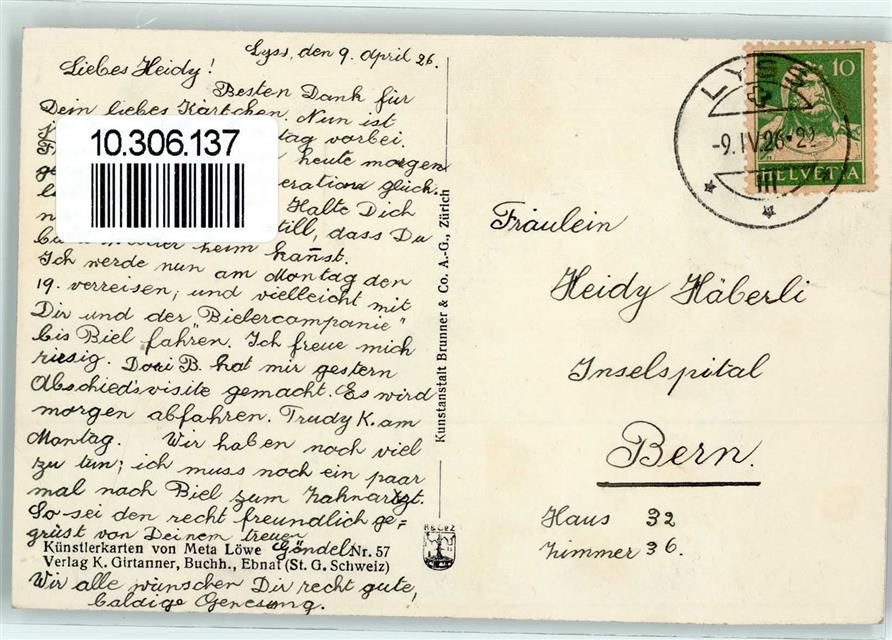 Lyss, den 9. April 26.
Liebes Heidy!
Besten Dank für
Dein liebes Kärtchen. Nun ist
tag vorbei.
heute morgen
glück.
Halte Dich
still, dass Du
wieder heim kannst.
Ich werde nun am Montag den
19. verreisen, und vielleicht mit
Dir und der Bielercompanie"
bis Biel fahren. Ich freue mich
riesig. Dori B. hat mir gestern
Abschiedsvisite gemacht. Es wird
morgen abfahren. Trudy K. am
Montag. Wir haben noch viel
zu tun; ich muss noch ein paar
mal nach Biel zum Zahnarzt.
So sei den recht freundlich ge=
grüst von Deinem treuen
Göndel
Wir alle wünschen Dir recht gute,
baldige Genesung.
10.306.137
Künstlerkarten von Meta Löwe Nr. 57
Verlag K. Girtanner, Buchh., Ebnat (St. G. Schweiz)
Kunstanstalt Brunner & Co. A.-G., Zürich
10
HELVETIA
LYSS
-9.IV.26-22
III
Fräulein
Heidy Häberli
Inselspital
Bern.
Haus 32
Zimmer 36.